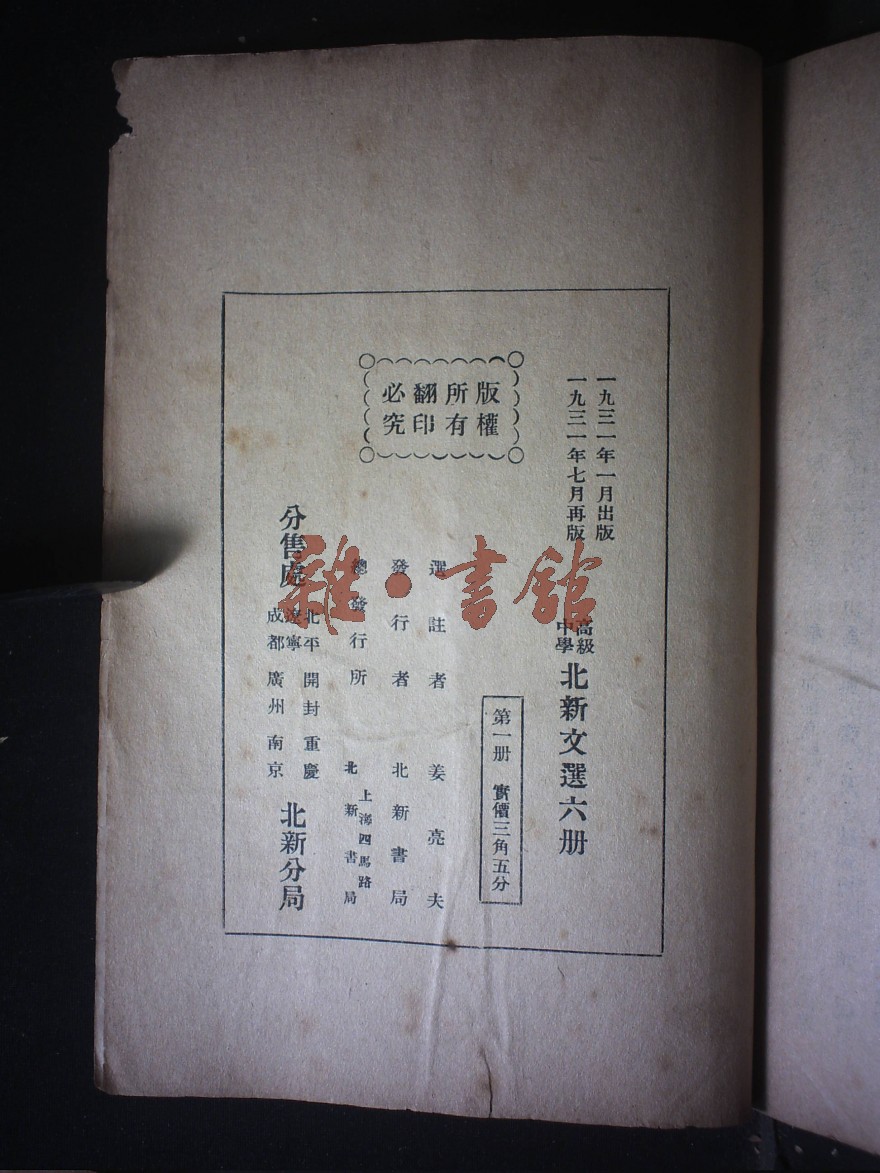 一九三一年一月出版
一九三一年七月再版
高級中學 北新文選六册
第一册 實價三角五分
版權所有翻印必究
選註者 姜亮夫
發行者 北新書局
總發行所 上海四馬路 北新書局
分售處 北平 開封 重慶 遼寧 成都 廣州 南京 北新分局
雜·書館